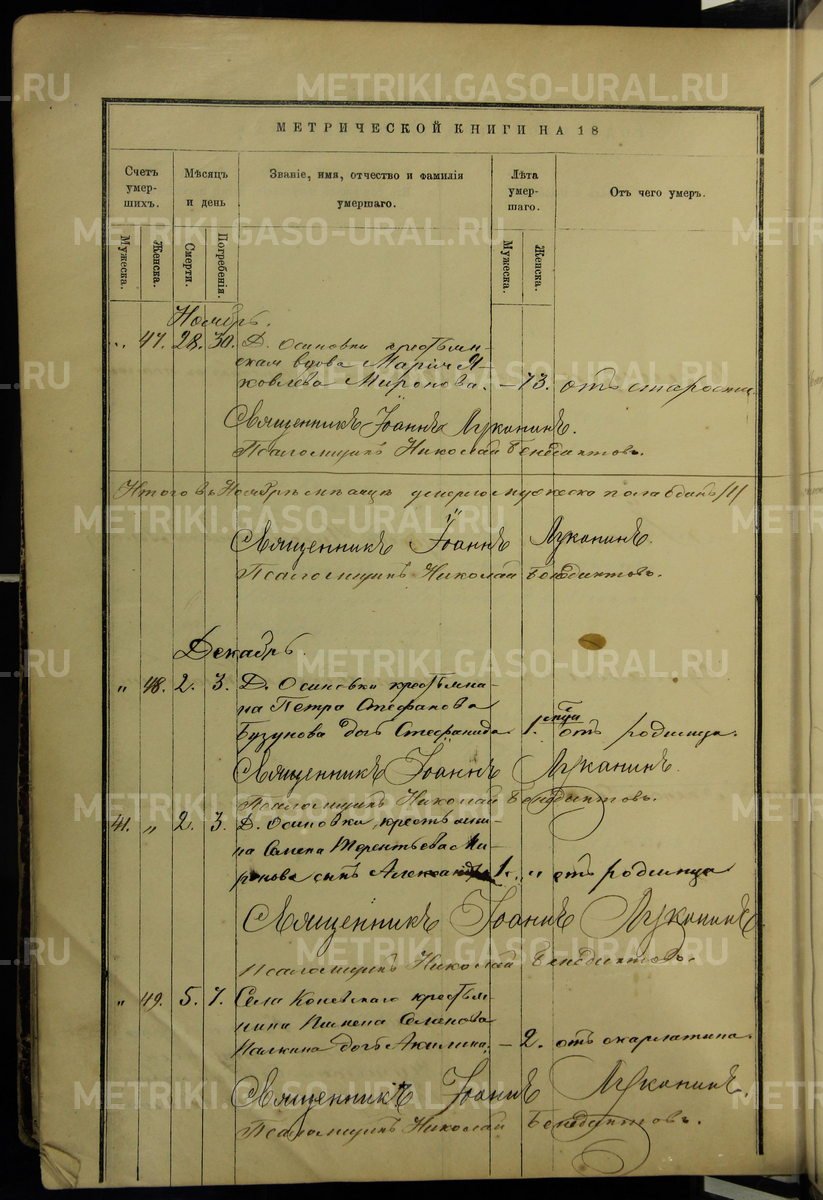 METRIKI.GASO-URAL.RU
МЕТРИЧЕСКОЙ КНИГИ НА 18
Счетъ умер-шихъ.
Мѣсяцъ и день
Званіе, имя, отчество и фамилія умершаго.
Лѣта умер-шаго.
Отъ чего умеръ.
Мужеска.
Женска.
Смерти.
Погребенія.
Мужеска.
Женска.
Ноябрь.
„ 47. 28. 30. Д. Осиновки крестьян-
ская вдова Марія Я-
ковлева Миронова. – 73. отъ старости
Священникъ Іоаннъ Луканинъ.
Псаломщикъ Николай Бенедиктовъ.
Итого въ Ноябрѣ мѣсяцѣ умерло мужеска пола
Священникъ Іоаннъ Луканинъ.
Псаломщикъ Николай Бенедиктовъ.
Декабрь.
„ 48. 2. 3. Д. Осиновки крестьяни-
на Петра Стефанова
Бузунова дочь Стефанида 1. отъ родимца.
Священникъ Іоаннъ Луканинъ.
Псаломщикъ Николай Бенедиктовъ.
41. „ 2. 3. Д. Осиновки крестьяни-
на Семена Терентьева Ми-
ронова сынъ Александръ 1. „ отъ родимца
Священникъ Іоаннъ Луканинъ.
Псаломщикъ Николай Бенедиктовъ.
„ 49. 5. 7. Села Коневскаго крестья-
нина Пимена Семенова
Палкина дочь Акилина. – 2. отъ скарлатина.
Священникъ Іоаннъ Луканинъ.
Псаломщикъ Николай Бенедиктовъ.